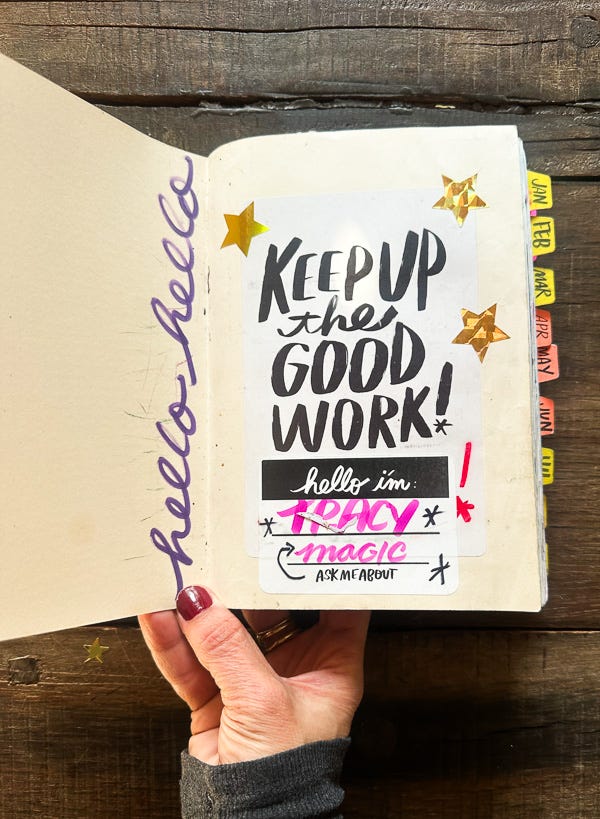 hello hello
KEEP UP
the
GOOD
WORK!
hello i'm:
TRACY
magic
ASK ME ABOUT
JAN
FEB
MAR
APR
MAY
JUN